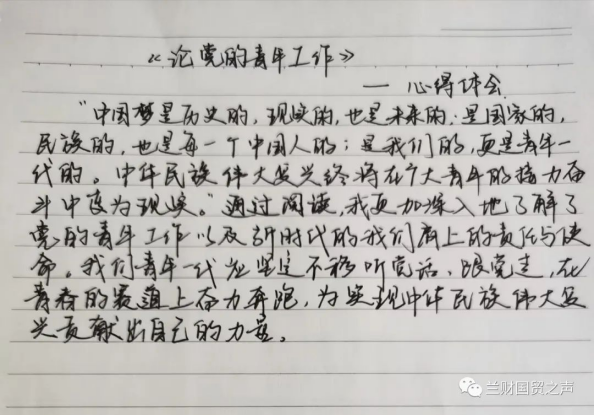 《论党的青年工作》
— 心得体会
“中国梦是历史的，现实的，也是未来的；是国家的，
民族的，也是每一个中国人的；是我们的，更是青年一
代的。中华民族伟大复兴终将在广大青年的接力奋
斗中变为现实。”通过阅读，我更加深入地了解了
党的青年工作以及新时代的我们肩上的责任与使
命。我们青年一代应坚定不移听党话、跟党走，在
青春的赛道上奋力奔跑，为实现中华民族伟大复
兴贡献出自己的力量。
兰财国贸之声